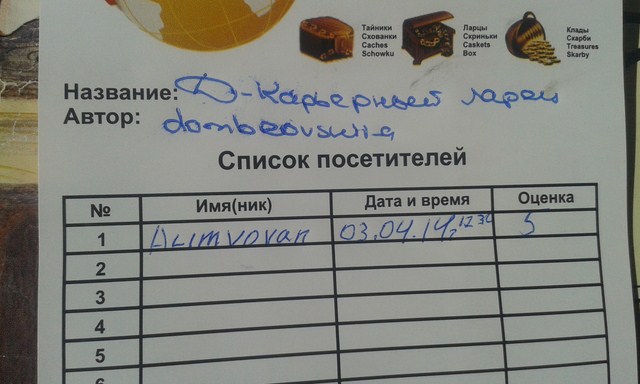 Тайники
Схованки
Caches
Schowku
Ларцы
Скриньки
Caskets
Box
Клады
Скарби
Treasures
Skarby
Название: Д-Карьерный ларец
Автор:
Список посетителей
№ Имя(ник) Дата и время Оценка
1 Alimvovan 03.04.14, 12 30 5
2
3
4
5
6